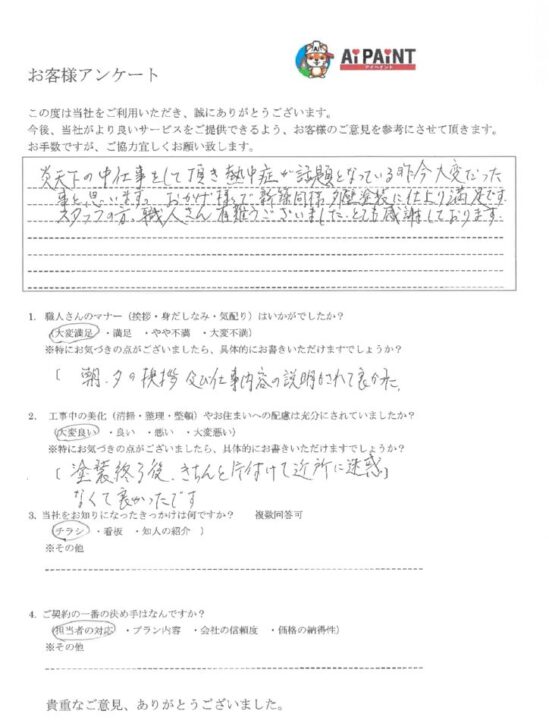 Ai PAiNT
アイペイント
お客様アンケート
この度は当社をご利用いただき、誠にありがとうございます。
今後、当社がより良いサービスをご提供できるよう、お客様のご意見を参考にさせて頂きます。
お手数ですが、ご協力宜しくお願い致します。
炎天下の中仕事をして頂き熱中症が話題となっている昨今大変だった
事と思います。おかげ様で新築同様外壁塗装に仕上り満足です
スタッフの方、職人さん有難うございました。とても感謝しております。
1. 職人さんのマナー（挨拶・身だしなみ・気配り）はいかがでしたか？
（大変満足 ・満足 ・やや不満 ・大変不満）
※特にお気づきの点がございましたら、具体的にお書きいただけますでしょうか？
〔 朝、夕の挨拶及び仕事内容の説明がされて良かった
2. 工事中の美化（清掃・整理・整頓）やお住まいへの配慮は充分にされていましたか？
（大変良い ・良い ・悪い ・大変悪い）
※特にお気づきの点がございましたら、具体的にお書きいただけますでしょうか？
〔 塗装終了後、きちんと片付けて近所に迷惑 〕
なくて良かったです
3. 当社をお知りになったきっかけは何ですか？ 複数回答可
（チラシ ・看板 ・知人の紹介 ）
※その他
4. ご契約の一番の決め手はなんですか？
（担当者の対応 ・プラン内容 ・会社の信頼度 ・価格の納得性）
※その他
貴重なご意見、ありがとうございました。